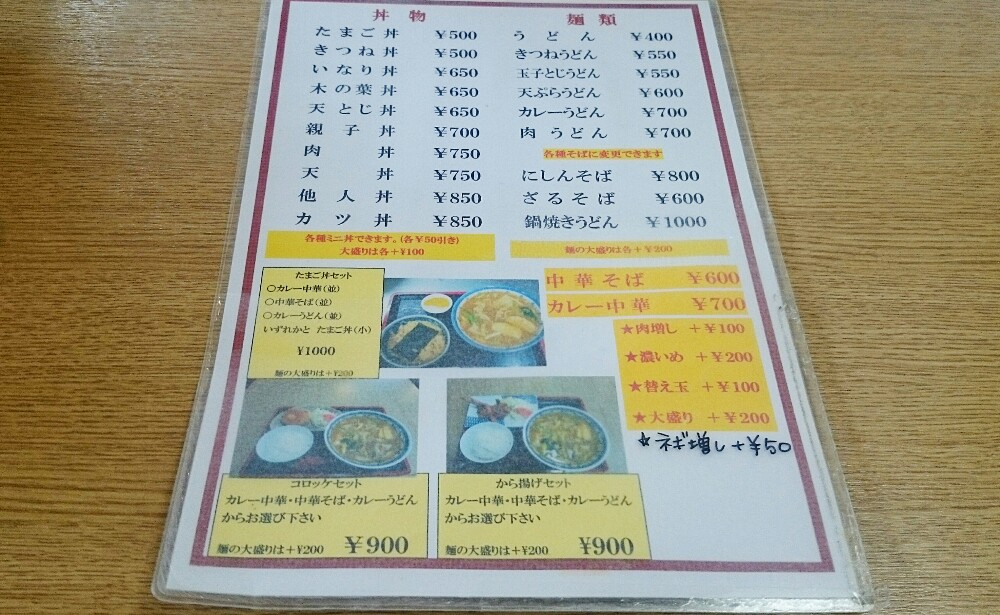 丼物
たまご丼 ¥500
きつね丼 ¥500
いなり丼 ¥650
木の葉丼 ¥650
天とじ丼 ¥650
親子丼 ¥700
肉丼 ¥750
天丼 ¥750
他人丼 ¥850
カツ丼 ¥850
各種ミニ丼できます。(各¥50引き)
大盛りは各+¥100
麺類
うどん ¥400
きつねうどん ¥550
玉子とじうどん ¥550
天ぷらうどん ¥600
カレーうどん ¥700
肉うどん ¥700
各種そばに変更できます
にしんそば ¥800
ざるそば ¥600
鍋焼きうどん ¥1000
麺の大盛りは各+¥200
中華そば ¥600
カレー中華 ¥700
★肉増し +¥100
★濃いめ +¥200
★替え玉 +¥100
★大盛り +¥200
☆ネギ増し+¥50
たまご丼セット
○カレー中華(並)
○中華そば(並)
○カレーうどん(並)
いずれかと たまご丼(小)
¥1000
麺の大盛りは+¥200
コロッケセット
カレー中華・中華そば・カレーうどん
からお選び下さい
麺の大盛りは+¥200 ¥900
から揚げセット
カレー中華・中華そば・カレーうどん
からお選び下さい
麺の大盛りは+¥200 ¥900